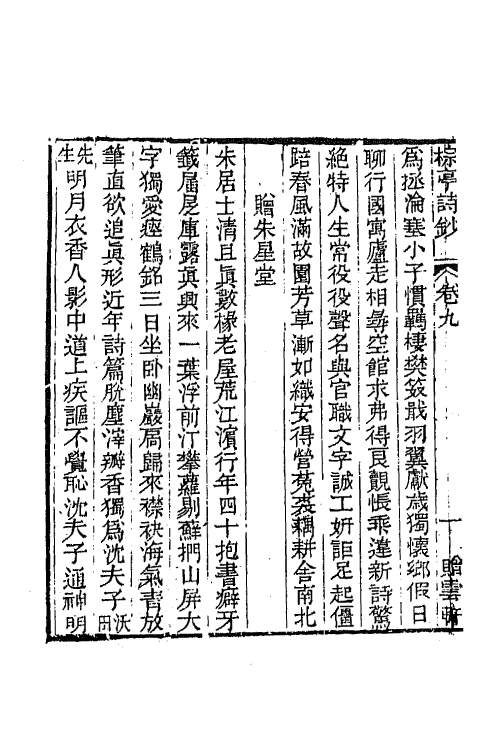 棕亭詩鈔 卷九 一 贈雲軒
爲拯淪塞小子慣羈棲樊笯戢羽翼厭歲獨懷鄉假日
聊行國寓廬走相尋空館求弗得良覿悵乖違新詩驚
絶特人生常役役聲名與官職文字誠工妍詎足起僵
踣春風滿故園芳草漸如織安得營菟裘耦耕舍南北
贈朱星堂
朱居士清且眞數椽老屋荒江濱行年四十抱書癖牙
籤屭屓庫露眞興來一葉浮前汀攀蘿剔蘚捫山屏大
字獨愛瘞鶴銘三日坐臥幽巖扃歸來襟袂海氣靑放
筆直欲追眞形近年詩篇脫塵滓瓣香獨爲沈夫子沃田
先生明月衣香人影中道上疾謳不覺恥沈夫子通神明